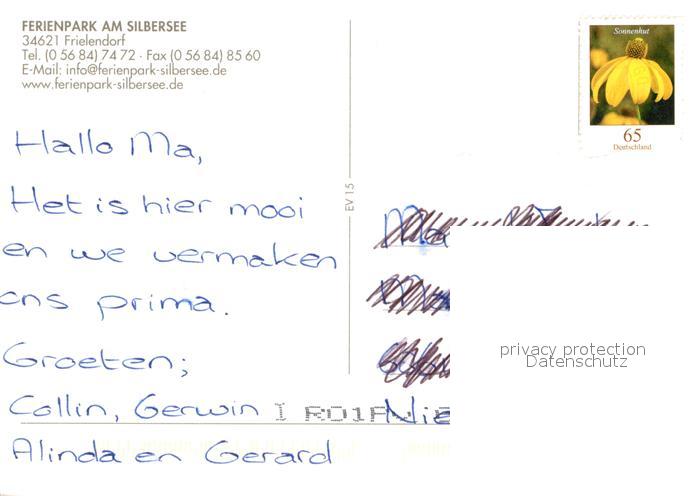 FERIENPARK AM SILBERSEE
34621 Frielendorf
Tel. (0 56 84) 74 72 · Fax (0 56 84) 85 60
E-Mail: info@ferienpark-silbersee.de
www.ferienpark-silbersee.de
Sonnenhut
65
Deutschland
Hallo Ma,
Het is hier mooi
en we vermaken
ons prima.
Groeten;
Collin, Gerwin
Alinda en Gerard
EV 15
privacy protection
Datenschutz